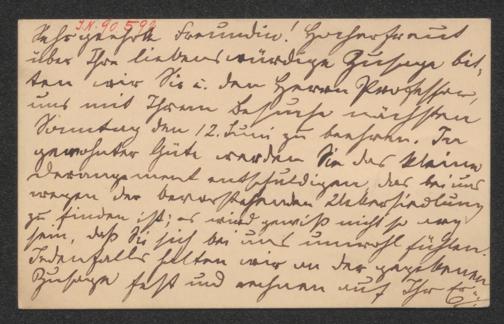 I.N. 90.599
Sehr geehrte Freundin! Hocherfreut
über Ihre liebenswürdige Zusage bit-
ten wir Sie u. den Herrn Professor,
uns mit Ihrem Besuche nächsten
Sonntag den 12. Juni zu beehren. In
gewohnter Güte werden Sie das kleine
Derangement entschuldigen, das bei uns
wegen der bevorstehenden Uebersiedlung
zu finden ist; es wird gewiß nicht so arg
sein, daß Sie sich bei uns unwohl fühlen.
Jedenfalls halten wir an der gegebenen
Zusage fest und rechnen auf Ihr